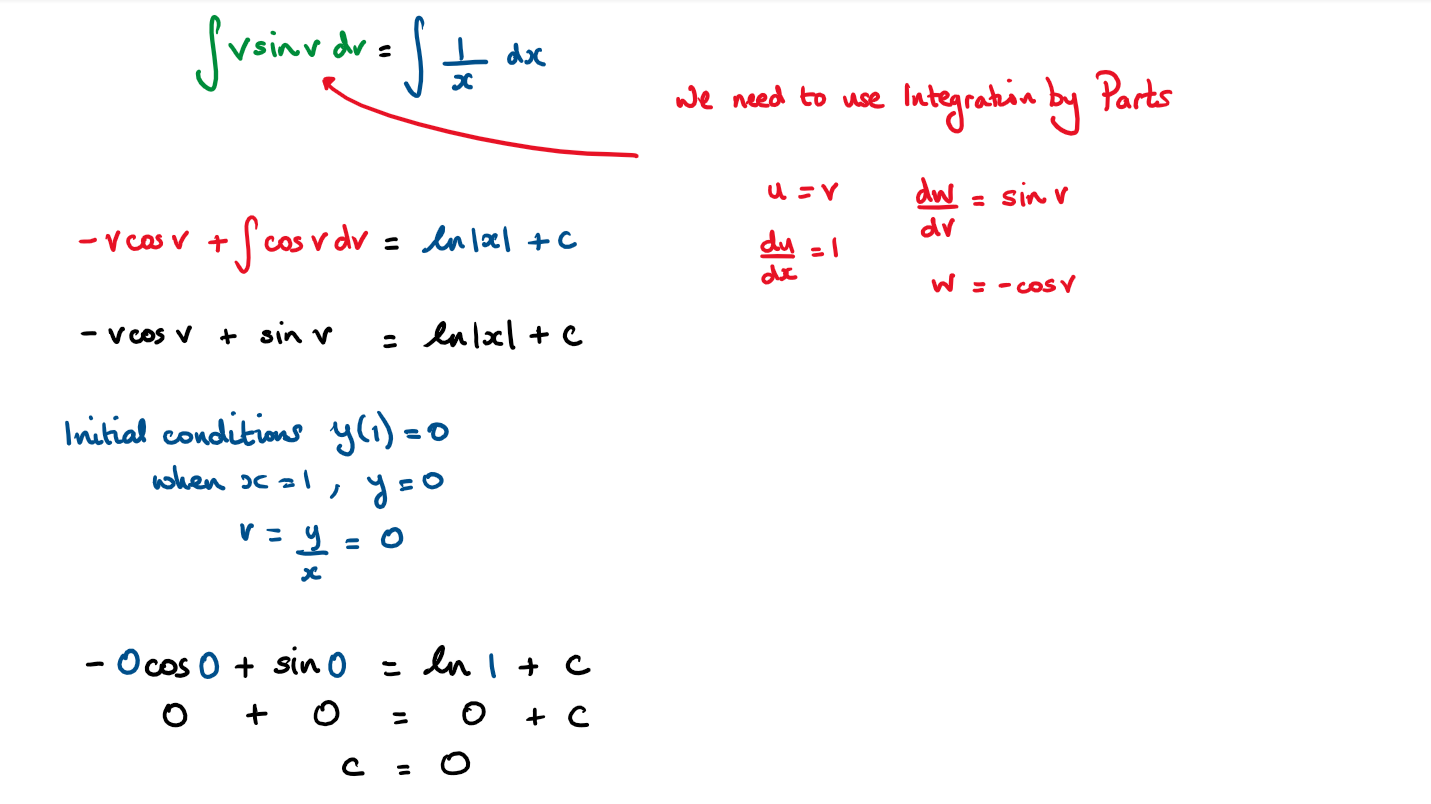 ∫ v sin v dv = ∫ 1/x dx
We need to use Integration by Parts
u = v    dw/dv = sin v
du/dx = 1
w = -cos v
-v cos v + ∫ cos v dv = ln|x| + c
-v cos v + sin v = ln|x| + c
Initial conditions y(1) = 0
when x = 1, y = 0
v = y/x = 0
-0 cos 0 + sin 0 = ln 1 + c
0 + 0 = 0 + c
c = 0